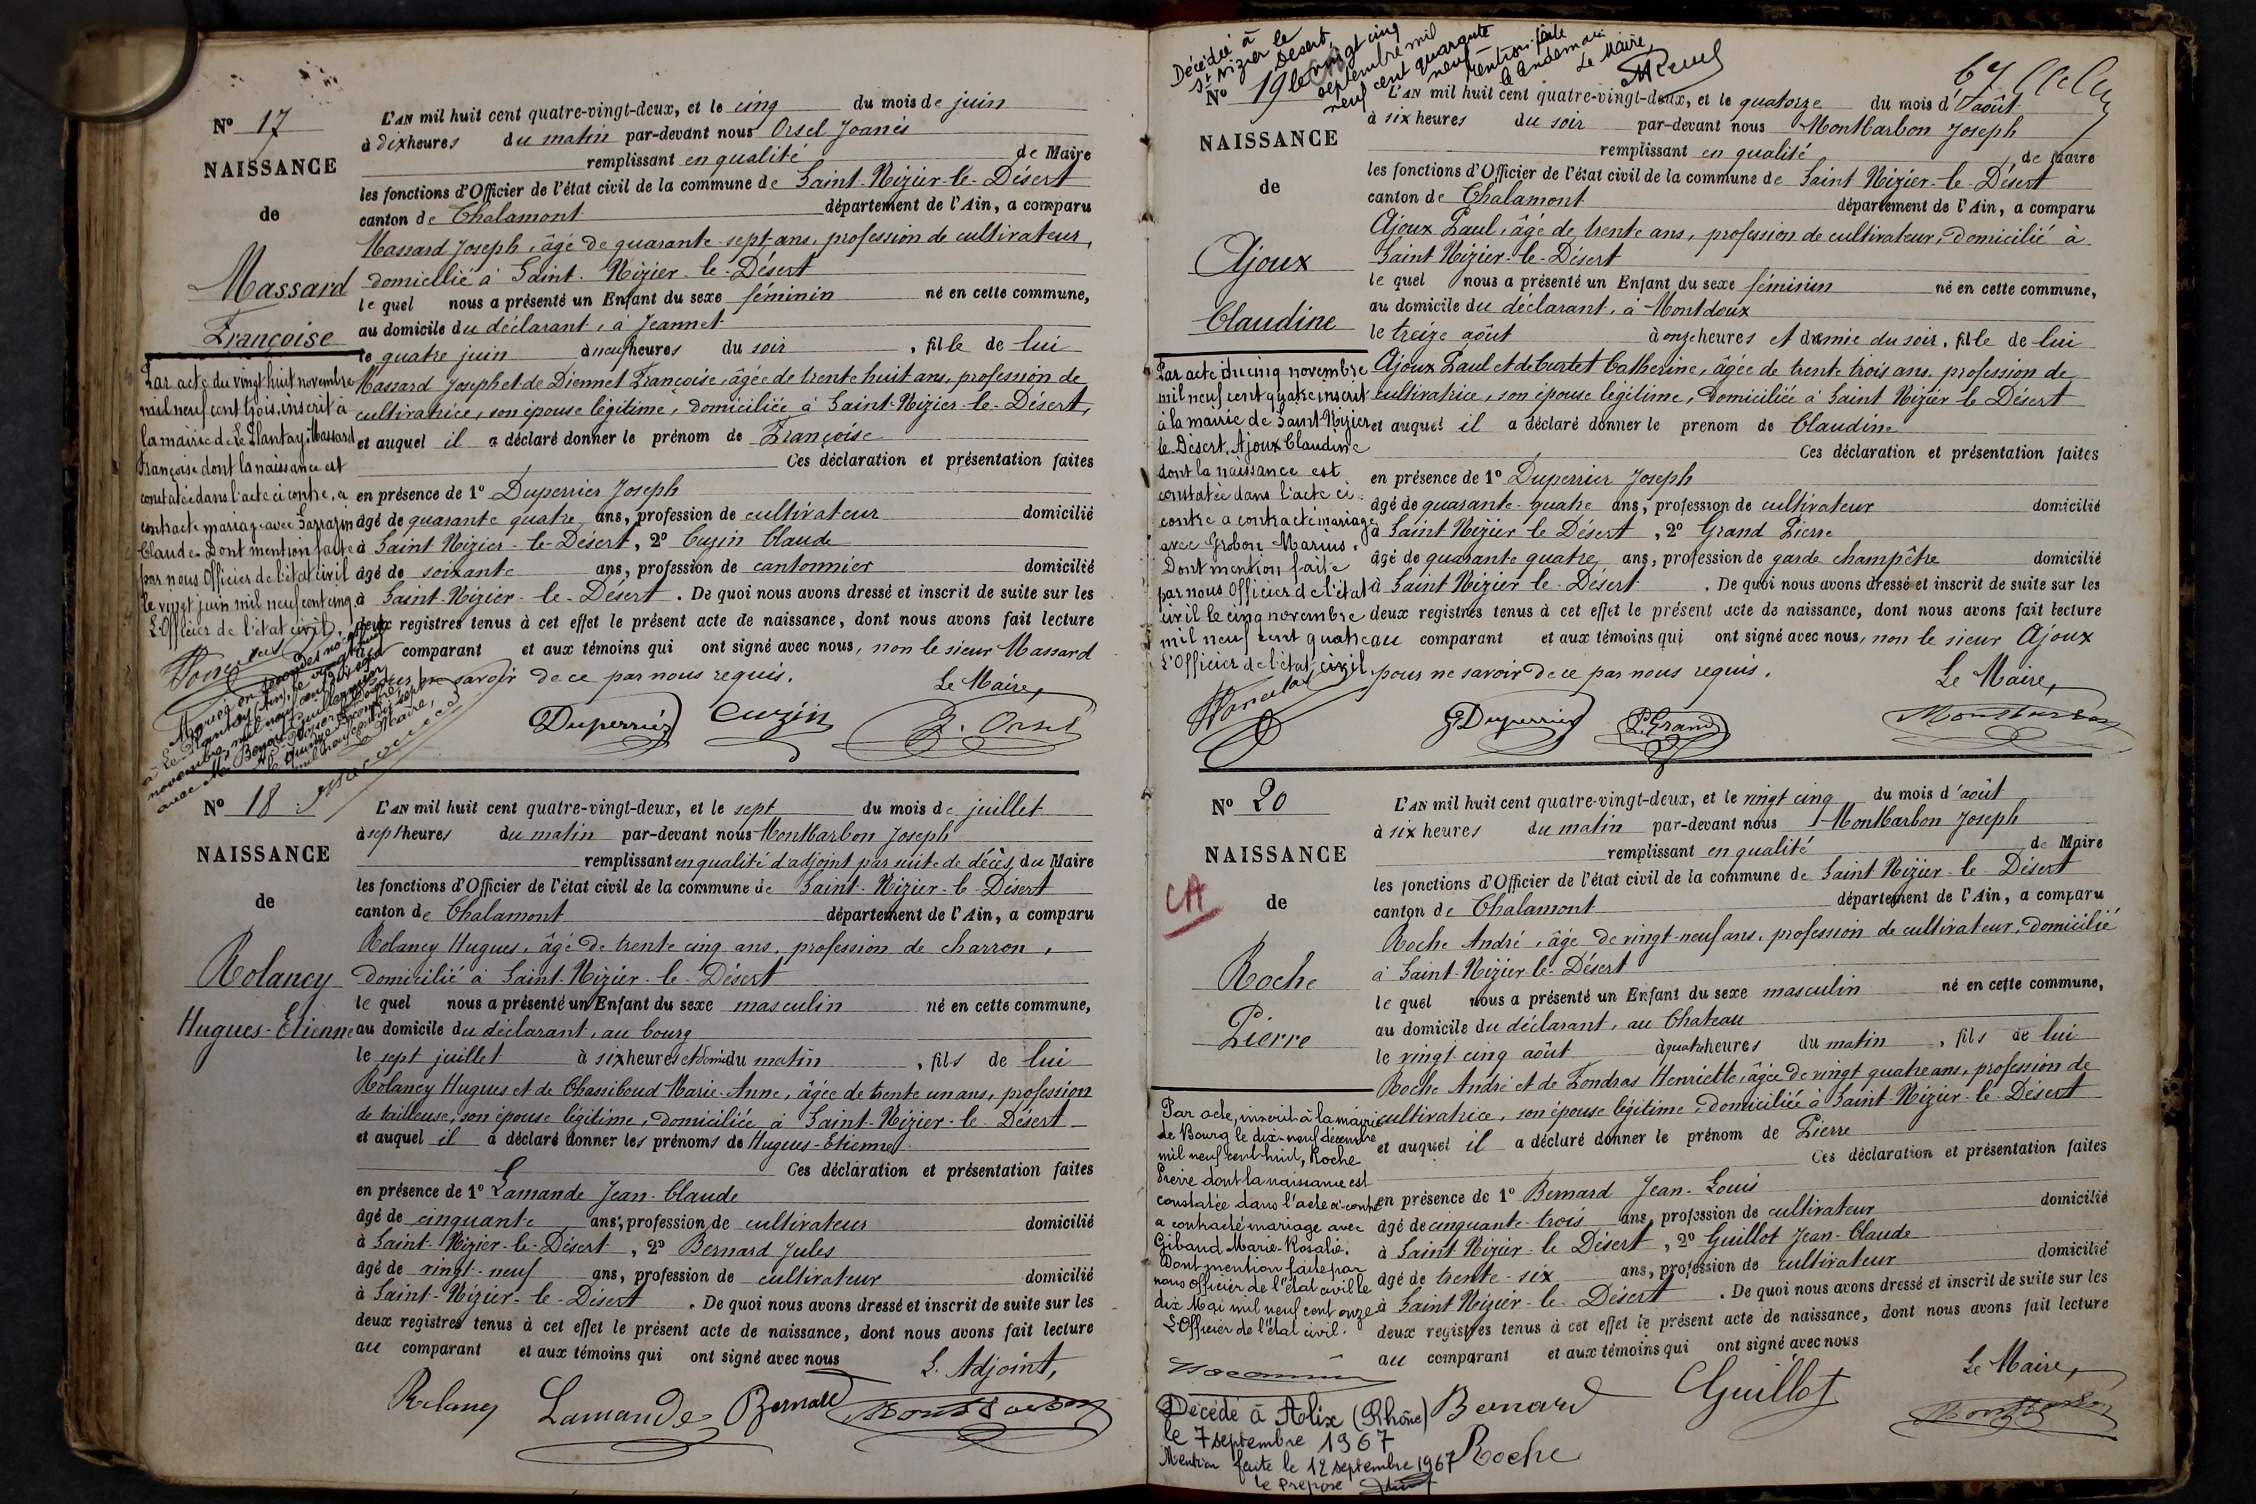 Nº 17
NAISSANCE
de
Massard
Françoise
L'AN mil huit cent quatre-vingt-deux, et le cinq du mois de juin
à dix heures du matin par-devant nous Orsel Joanès
remplissant en qualité de Maire
les fonctions d'Officier de l'état civil de la commune de Saint-Nizier-le-Désert
canton de Chalamont département de l'Ain, a comparu
Massard Joseph, âgé de quarante-sept ans, profession de cultivateur,
domicilié à Saint-Nizier-le-Désert
le quel nous a présenté un Enfant du sexe féminin né en cette commune,
au domicile du déclarant, à Jeannet
le quatre juin à neuf heures du soir, fille de lui
Massard Joseph et de Diennet Françoise, âgée de trente huit ans, profession de
cultivatrice, son épouse légitime, domiciliée à Saint-Nizier-le-Désert,
et auquel il a déclaré donner le prénom de Françoise
Ces déclaration et présentation faites
en présence de 1º Duperrier Joseph
âgé de quarante quatre ans, profession de cultivateur domicilié
à Saint Nizier-le-Désert, 2º Cuzin Claude
âgé de soixante ans, profession de cantonnier domicilié
à Saint-Nizier-le-Désert. De quoi nous avons dressé et inscrit de suite sur les
deux registres tenus à cet effet le présent acte de naissance, dont nous avons fait lecture
au comparant et aux témoins qui ont signé avec nous, non le sieur Massard
pour ne savoir de ce par nous requis.
Le Maire,
Duperrier Cuzin J. Orsel
Par acte du vingt huit novembre
mil neuf cent trois, inscrit à
la mairie de Le Plantay, Massard
Françoise dont la naissance est
constatée dans l'acte ci contre, a
contracté mariage avec Sarrazin
Claude. Dont mention faite
par nous Officier de l'état civil
le vingt juin mil neuf cent cinq.
L'Officier de l'état civil
Mariée en secondes noces
à Le Plantay (Ain), le vingt huit
novembre mil neuf cent
avec M. Guillermin
le quinze décembre
mil neuf cent sept
Le Maire,
Nº 18
NAISSANCE
de
Rolancy
Hugues-Etienne
L'AN mil huit cent quatre-vingt-deux, et le sept du mois de juillet
à sept heures du matin par-devant nous Montbarbon Joseph
remplissant en qualité d'adjoint par suite de décès du Maire
les fonctions d'Officier de l'état civil de la commune de Saint-Nizier-le-Désert
canton de Chalamont département de l'Ain, a comparu
Rolancy Hugues, âgé de trente cinq ans, profession de charron,
domicilié à Saint-Nizier-le-Désert
le quel nous a présenté un Enfant du sexe masculin né en cette commune,
au domicile du déclarant, au bourg
le sept juillet à six heures et demi du matin, fils de lui
Rolancy Hugues et de Chassiboud Marie-Anne, âgée de trente un ans, profession
de tailleuse, son épouse légitime, domiciliée à Saint-Nizier-le-Désert
et auquel il a déclaré donner les prénoms de Hugues-Etienne
Ces déclaration et présentation faites
en présence de 1º Lamande Jean-Claude
âgé de cinquante ans, profession de cultivateur domicilié
à Saint-Nizier-le-Désert, 2º Bernard Jules
âgé de vingt-neuf ans, profession de cultivateur domicilié
à Saint-Nizier-le-Désert. De quoi nous avons dressé et inscrit de suite sur les
deux registres tenus à cet effet le présent acte de naissance, dont nous avons fait lecture
au comparant et aux témoins qui ont signé avec nous
L'Adjoint,
Rolancy Lamande Bernard Montbarbon
Décédée à
St Nizier le
Désert,
le vingt cinq
septembre mil
neuf cent quarante
neuf
mention faite
le lendemain
Le Maire
67
Nº 19
NAISSANCE
de
Ajoux
Claudine
L'AN mil huit cent quatre-vingt-deux, et le quatorze du mois d'août
à six heures du soir par-devant nous Montbarbon Joseph
remplissant en qualité de Maire
les fonctions d'Officier de l'état civil de la commune de Saint Nizier-le-Désert
canton de Chalamont département de l'Ain, a comparu
Ajoux Paul, âgé de trente ans, profession de cultivateur, domicilié à
Saint Nizier-le-Désert
le quel nous a présenté un Enfant du sexe féminin né en cette commune,
au domicile du déclarant, à Montdoux
le treize août à onze heures et demie du soir, fille de lui
Ajoux Paul et de Curtet Catherine, âgée de trente trois ans, profession de
cultivatrice, son épouse légitime, domiciliée à Saint Nizier-le-Désert
et auquel il a déclaré donner le prénom de Claudine
Ces déclaration et présentation faites
en présence de 1º Duperrier Joseph
âgé de quarante-quatre ans, profession de cultivateur domicilié
à Saint Nizier-le-Désert, 2º Grand Pierre
âgé de quarante quatre, ans, profession de garde champêtre domicilié
à Saint Nizier-le-Désert. De quoi nous avons dressé et inscrit de suite sur les
deux registres tenus à cet effet le présent acte de naissance, dont nous avons fait lecture
au comparant et aux témoins qui ont signé avec nous, non le sieur Ajoux
pour ne savoir de ce par nous requis.
Le Maire,
J Duperrier P. Grand Montbarbon
Par acte du cinq novembre
mil neuf cent quatre, inscrit
à la mairie de Saint-Nizier
le-Désert, Ajoux Claudine
dont la naissance est
constatée dans l'acte ci-
contre a contracté mariage
avec Grobon Marius.
Dont mention faite
par nous Officier de l'état
civil le cinq novembre
mil neuf cent quatre
L'Officier de l'état civil
Nº 20
NAISSANCE
CA
de
Roche
Pierre
L'AN mil huit cent quatre-vingt-deux, et le vingt cinq du mois d'août
à six heures du matin par-devant nous Montbarbon Joseph
remplissant en qualité de Maire
les fonctions d'Officier de l'état civil de la commune de Saint Nizier-le-Désert
canton de Chalamont département de l'Ain, a comparu
Roche André, âgé de vingt-neuf ans, profession de cultivateur, domicilié
à Saint-Nizier-le-Désert
le quel nous a présenté un Enfant du sexe masculin né en cette commune,
au domicile du déclarant, au Chateau
le vingt cinq août à quatre heures du matin, fils de lui
Roche André et de Fondras Henriette, âgée de vingt quatre ans, profession de
cultivatrice, son épouse légitime, domiciliée à Saint-Nizier-le-Désert
et auquel il a déclaré donner le prénom de Pierre
Ces déclaration et présentation faites
en présence de 1º Bernard Jean-Louis
âgé de cinquante-trois ans, profession de cultivateur domicilié
à Saint Nizier-le Désert, 2º Guillot Jean-Claude
âgé de trente-six ans, profession de cultivateur domicilié
à Saint Nizier-le-Désert. De quoi nous avons dressé et inscrit de suite sur les
deux registres tenus à cet effet le présent acte de naissance, dont nous avons fait lecture
au comparant et aux témoins qui ont signé avec nous
Le Maire,
Bernard Guillot Montbarbon
Roche
Par acte, inscrit à la mairie
de Bourg le dix-neuf décembre
mil neuf cent huit, Roche
Pierre dont la naissance est
constatée dans l'acte ci-contre
a contracté mariage avec
Gibaud Marie-Rosalie.
Dont mention faite par
nous officier de l'état civil le
dix Mai mil neuf cent onze
L'Officier de l'état civil.
Décédé à Alix (Rhône)
le 7 septembre 1967
Mention faite le 12 septembre 1967
le préposé